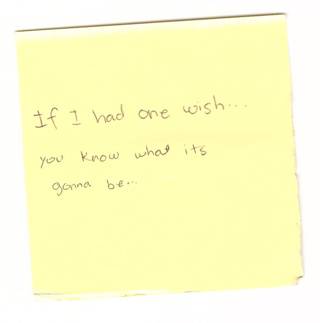 If I had one wish...
you know what its
gonna be...